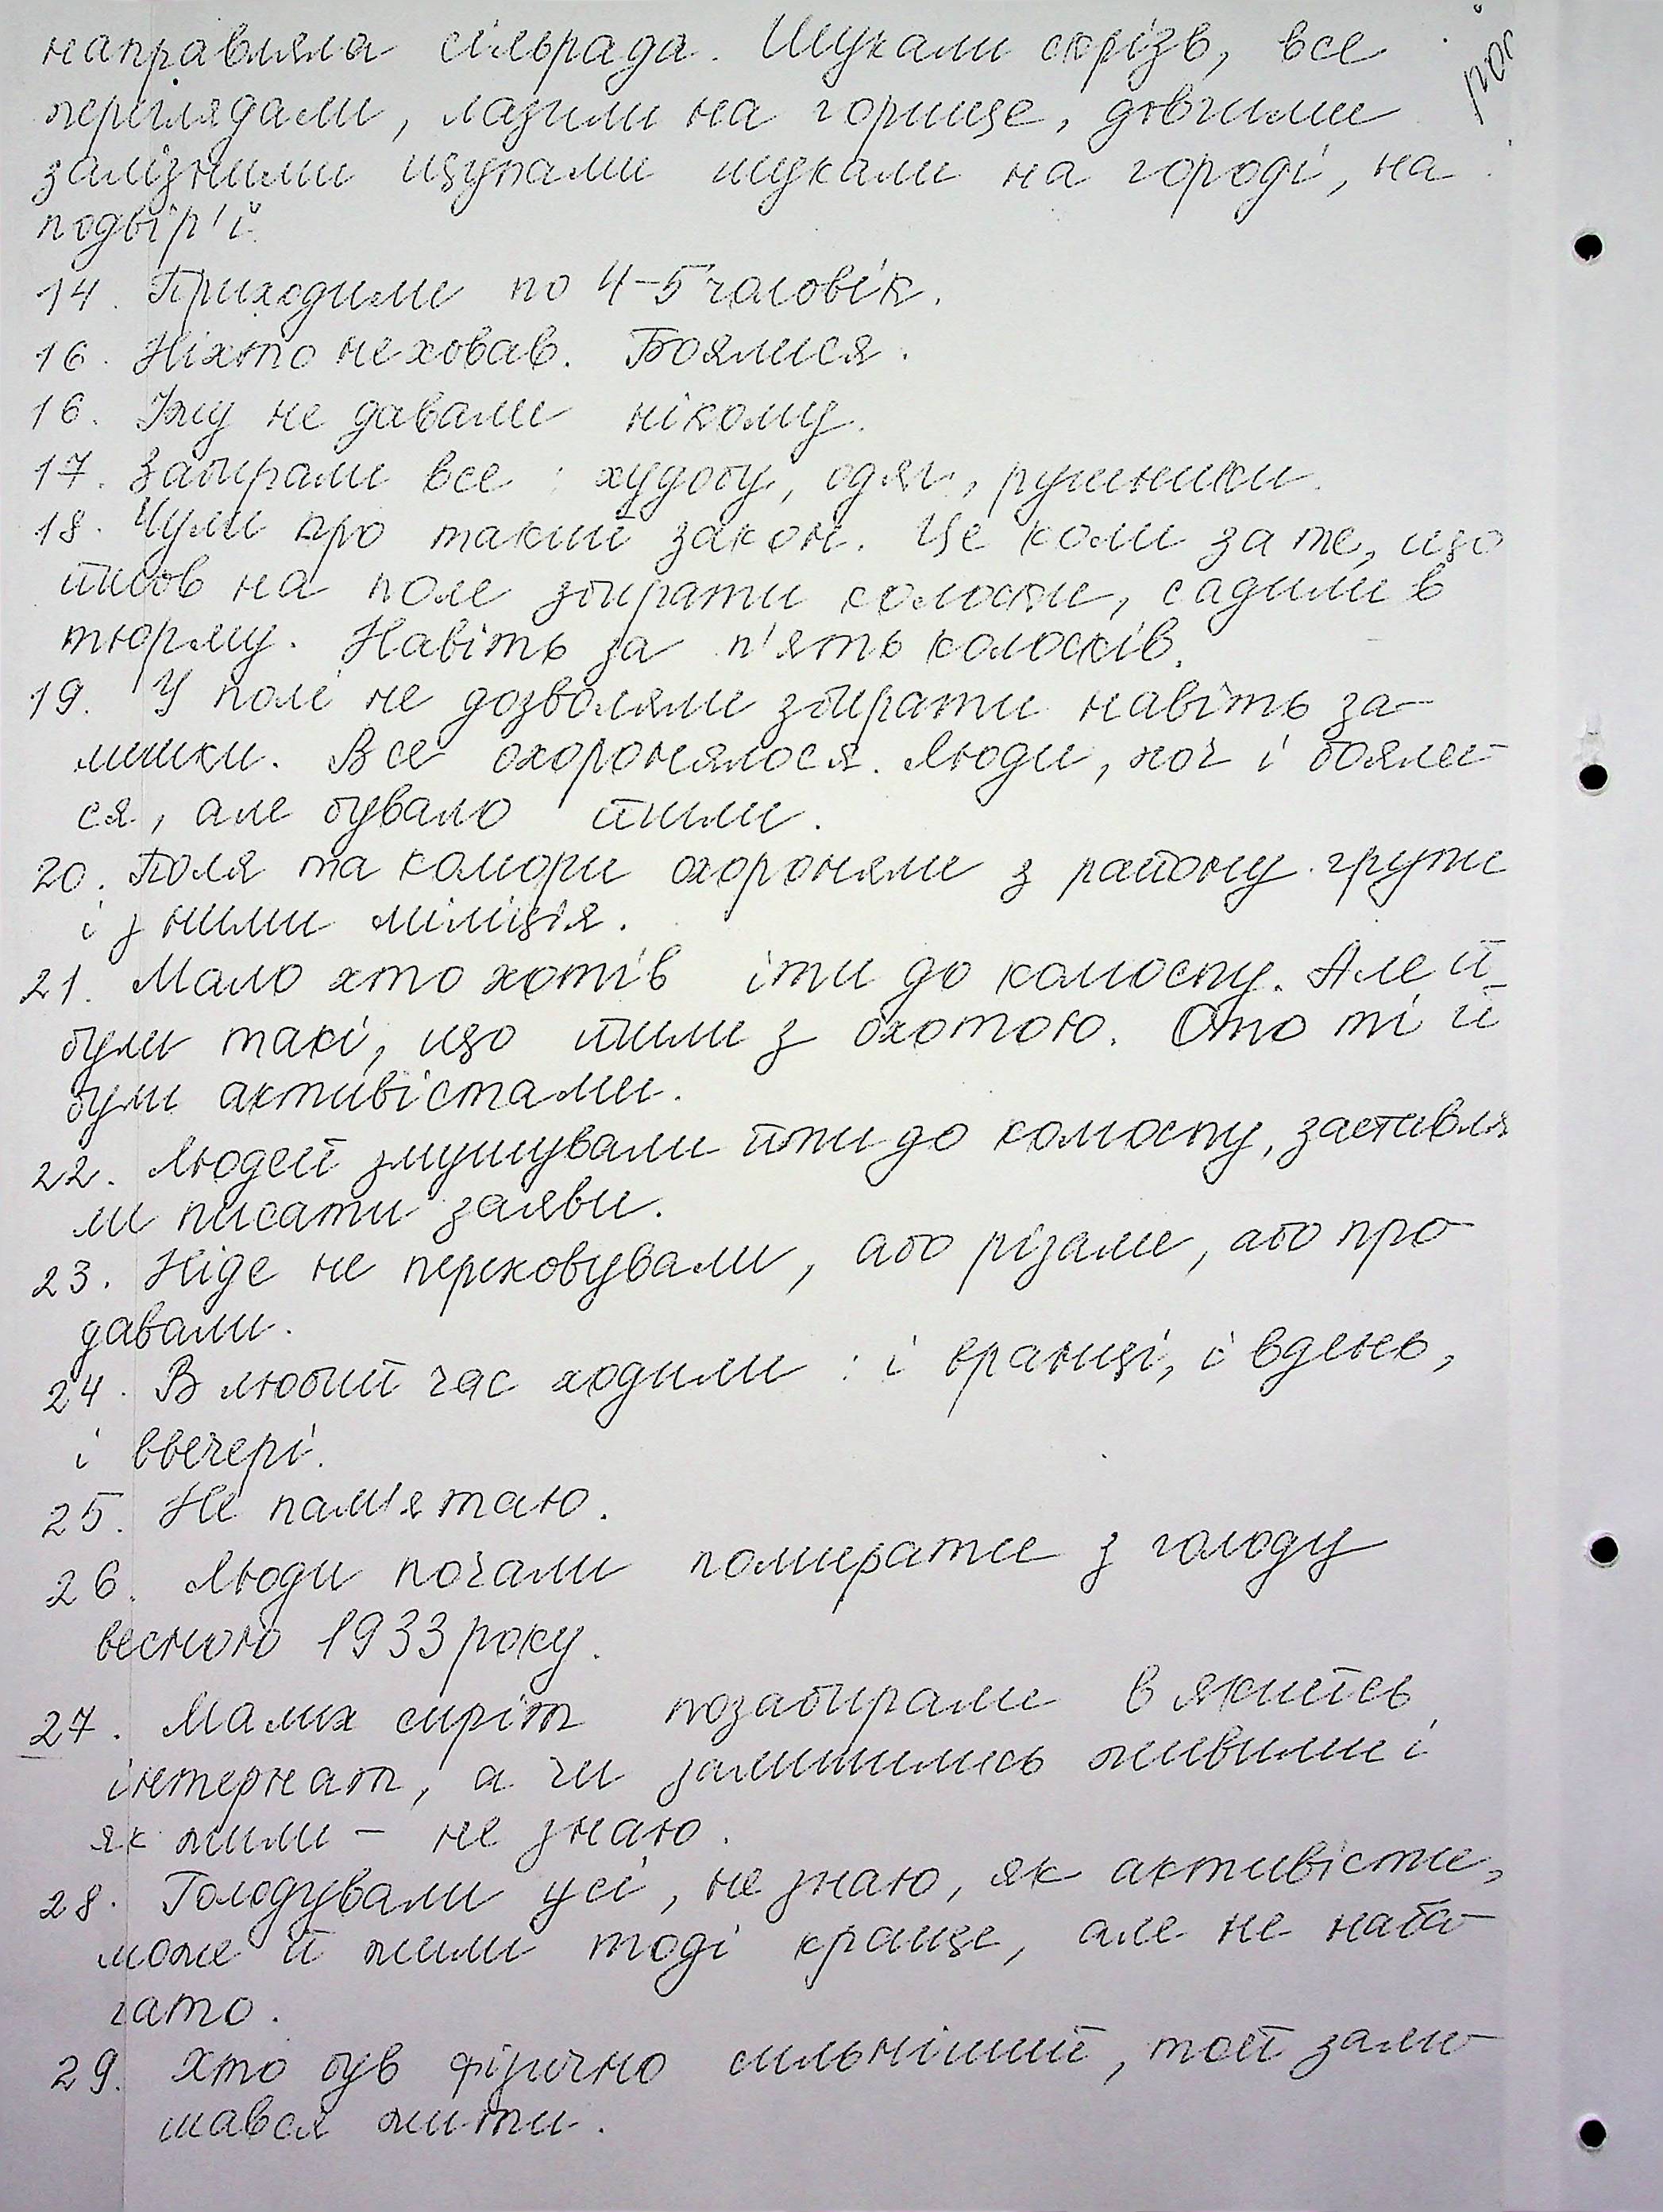 направляла сільрада. Шукали скрізь, все
переглядали, лазили на горище, довгими
залізними щупами шукали на городі, на
подвір'ї.
14. Приходили по 4-5 чоловік.
16. Ніхто не ховав. Боялися.
16. Їжу не давали нікому.
17. Забирали все: худобу, одяг, рушники.
18. Чули про такий закон. Це коли за те, що
йшов на поле збирати колоски, садили в
тюрму. Навіть за п'ять колосків.
19. У полі не дозволяли збирати навіть за-
лишки. Все охоронялося. Люди, хоч і бояли-
ся, але бувало йшли.
20. Поля та комори охороняли з району групи
і з ними міліція.
21. Мало хто хотів іти до колоспу. Але й
були такі, що йшли з охотою. Ото ті й
були активістами.
22. Людей змушували йти до колоспу, заставля
ли писати заяви.
23. Ніде не переховували, або різали, або про-
давали.
24. В любий час ходили: і вранці, і вдень,
і ввечері.
25. Не пам'ятаю.
26. Люди почали помирати з голоду
весною 1933 року.
27. Малих сиріт позабирали в якийсь
інтернат, а чи залишились живими і
як жили - не знаю.
28. Голодували усі, не знаю, як активісти,
може й жили тоді краще, але не наба-
гато.
29. Хто був фізично сильніший, той зали-
шався жити.